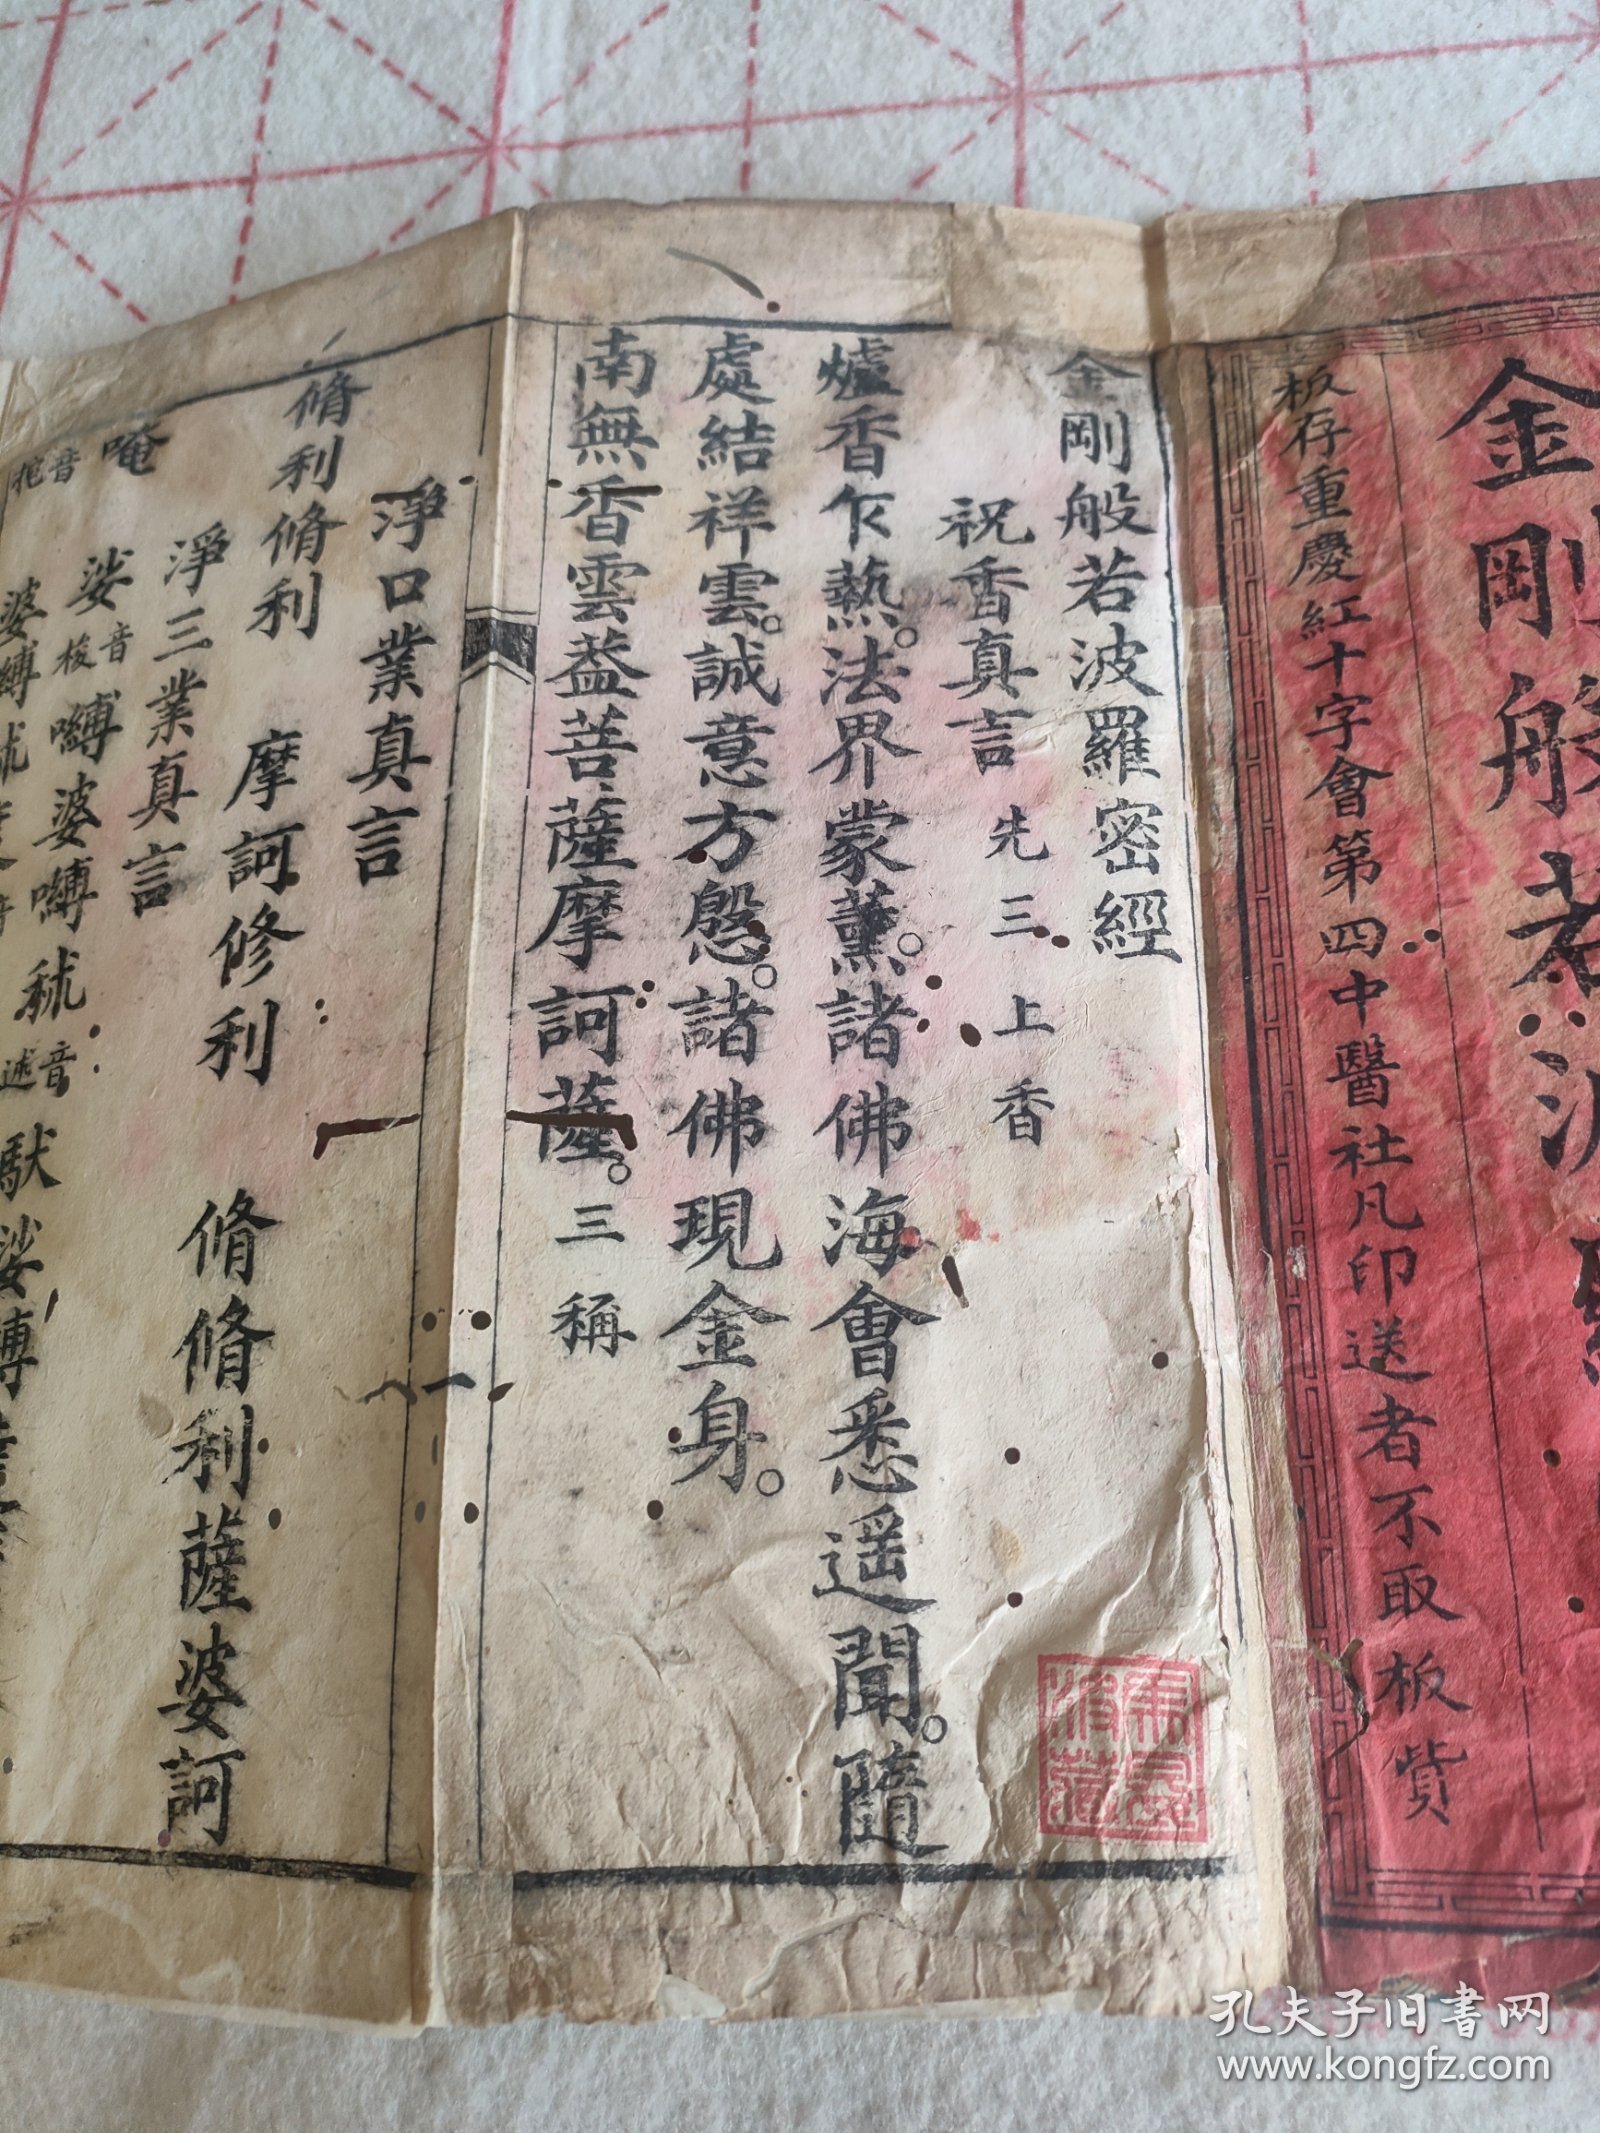 金剛般若波
板存重慶紅十字會第四中醫社凡印送者不取板貲
金剛般若波羅密經
祝香真言 先三上香
爐香乍熱。法界蒙薰。諸佛海會悉遥聞。隨
處結祥雲。誠意方慇。諸佛現金身。
南無香雲葢菩薩摩訶薩。三稱
淨口業真言
脩利脩利 摩訶修利 脩脩利薩婆訶
淨三業真言
唵 娑音梭嚩婆嚩秫音述馱娑嚩
音
婆嚩秫
一
孔夫子旧書网
www.kongfz.com